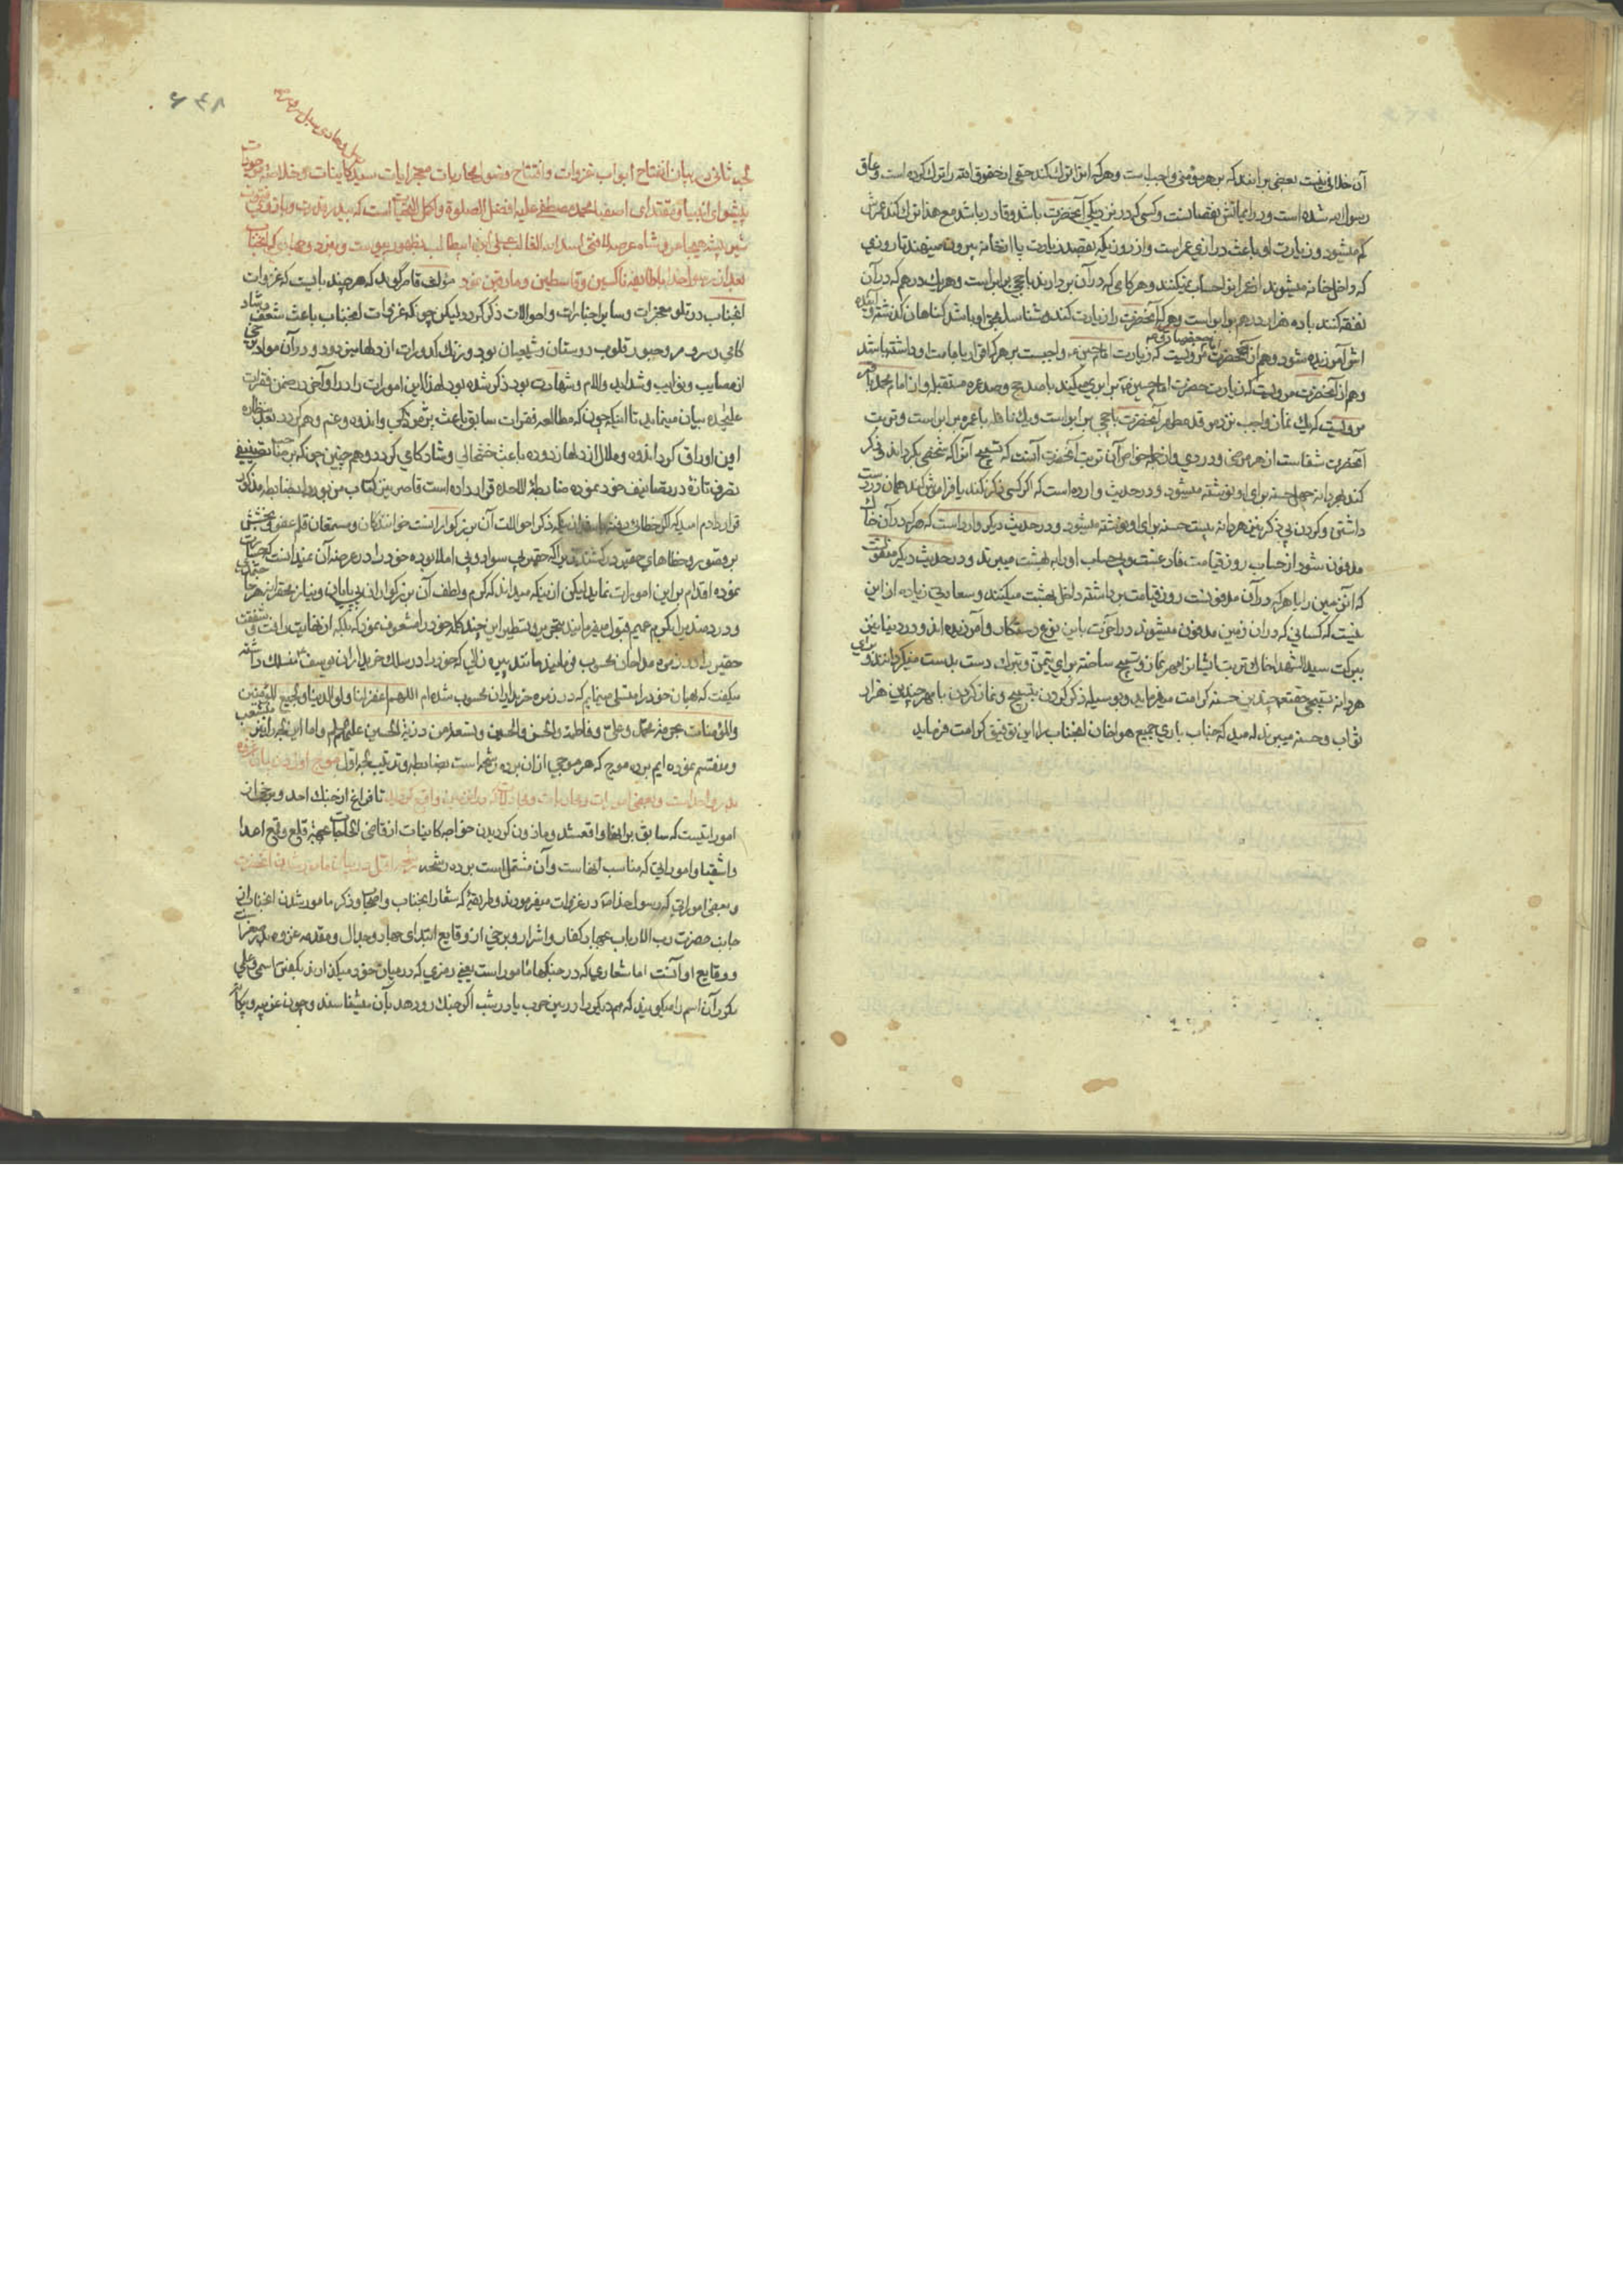 آن خلافی نیست بعضی برانند که بر هر مؤمنی واجب است و هر که انرا ترک کند حقی از حقوق الله را ترک کرده است و عاق
رسول الله شده است و در ایمانش نقصانست و کسی که در نزدیکی آنحضرت باشد و قادر باشد مع هذا ترک کند عمرش
کم میشود و زیارت او باعث درازی عمر است و از روزیکه بقصد زیارت پا از خانه بیرون مینهند تا روزی
که داخل خانه میشوند از عمر او حساب نمیکنند و هر کامی که در آن بر دارند با حجی برابر است و هر یک درهم که در آن
نفقه کنند با ده هزار درهم برابر است و هر که آنحضرت را زیارت کند و شناسا بحق او باشد کناهان کذشته و آینده
اش آمرزیده میشود و هم از آنحضرت مرویست که زیارت امام حسین ع واجبست بر هر که اقرار بامامت او داشته باشد
و هم از آنحضرت مرویست که زیارت حضرت امام حسین ع برابری میکند با صد حج و صد عمره مستقبله و از امام محمد باقر
مرویست که یک نماز واجب نزد مرقد مطهر آنحضرت با حجی برابر است و یک نافله با عمره برابر است و تربت
آنحضرت شفاست از هر مرضی و دردی و از جمله خواص آن تربت آنحضرت آنست که تسبیح آنرا که شخصی بکرداند بی ذکر
کند بهر دانه چهل حسنه برای او نوشته میشود و در حدیث وارده است که اکر کسی ذکر نکند یا فراموش کند همان در دست
داشتن و کردن بی ذکر نیز بهر دانه بیست حسنه برای او نوشته میشود و در حدیث دیکر وارد است که هر که در آن خاک
مدفون شود از حساب روز قیامت فارغست و بی حساب او را به بهشت میبرند و در حدیث دیکر منقولست
که آن زمین را با هر که در آن مدفونست روز قیامت برداشته داخل بهشت میکنند و سعادتی زیاده از این
نیست که کسانی که در ان زمین مدفون میشوند در آخرت باین نوع رستکار و آمرزیده اند و در دنیا نیز
ببرکت سید الشهدا خاک تربت ایشانرا مهر نماز و تسبیح ساخته برای تیمن و تبرک دست بدست میکردانند و برای
هر دانه تسبیحی حقتعالی چندین حسنه کرامت میفرماید و بوسیله ذکر کردن بتسبیح و نماز کردن بامهر چندین هزار
ثواب و حسنه میبرند امید که جناب باری جمیع هواخاهان آنجناب را این توفیق کرامت فرماید
۶۳۸
لجه ثانی در بیان انفتاح ابواب غزوات و افتتاح فصول محاربات معجز ایات سید کاینات و خلاصه موجودات
پیشوای انبیا و مقتدای اصفیا محمد مصطفی علیه افضل الصلوة و اکمل التحیات است که
شیر بیشه هیجا و شاه عرصه لافتی اسد الله الغالب علی ابن ابیطالب بظهور پیوست و نبرد و جهادی که آنجناب
بعد از رسول خدا با طایفه ناکثین و قاسطین و مارقین نمود مؤلف قاصر کوید که هر چند بایست که غزوات
آنجناب در تلو معجزات و سایر اخبارات و احوالات ذکر کردد لیکن چون که غزوات آنجناب باعث شعف و شاد
کامی و سرور و حبور قلوب دوستان و شیعیان بود و زنک کدورات از دلها میزدود و در آن مواد برخی
از مصایب و نوایب و شداید و آلام و شهادت بود ذکر شده بود لهذا این امورات را در اواخر در ضمن فقرات
علیحده بیان مینماید تا اینکه چون که مطالعه فقرات سابق باعث و اندوه و غم و هم کردد بعد مطالعه
این اوراق کرد اندوه و ملال از دلها زدوده باعث خوشحالی و شادکامی کردد و هم چنین چون که هر صاحب تصنیفی
تصرف تازه در تصانیف خود نموده ضابطه علاحده قرار داده است قاصر نیز کتاب مزبور را بضابطه مذکور
قرار دادم امید که اکر خطائی رفته باشد از آنکه ذکر احوالات آن بزرکوارانست خوانندکان و مستمعان قلم عفو و بخشش
بر قصور و خطاهای حقیر در کشند چرا که حقیر بی سواد و بی املا بوده خود را در عرصه آن نمیدانست که جسارت
نموده اقدام بر این امورات نماید لیکن از اینکه میداند که کرم و لطف آن بزرکواران بی پایان و نیاز محقرانه هر
و دردمندیرا بکرم عمیم قبول میفرمایند بتحریر و تسطیر این چند کلمه خود را مشعوف نمود که بلکه از غایت رافت و شفقت
حقیر را در زمره مداحان محسوب فرمایند مانند پیره زالی که خود را در سلک خریداران یوسف منسلک داشته
میکفت که همان خود را متسلی مینمایم که در زمره خریداران محسوب شده ام اللهم اغفر لنا و لوالدینا و لجمیع المؤمنین
و المؤمنات بحرمة محمد و علی و فاطمه و الحسن و الحسین و تسعة من ذریة الحسین علیهم السلم و اما این بحر را منشعب
و منقسم نموده ایم بر ده موج که هر موجی از ان بر ده رشحه است بضابطه و ترتیب بحر اول موج اول در بیان غزوه
بدر و احد است و بعضی امورات تا فراغ از جنک احد و برخی از
اموراتیست که سابق بر اینها واقع شد و ماذون کردیدن خواجه کاینات از قاضی الحاجات بجهة قلع و قمع اعدا
و اشقیا و اموراتی که مناسب انهاست و آن مشتملست بر ده رشحه رشحه اول در بیان مامور شدن آنحضرت
و بعضی اموراتی که رسول خدا در غزوات میفرمودند و طریقه که شعار آنجناب و اصحاب و ذکر مامور شدن آنجناب از
جانب حضرت رب الارباب بجهاد کفار و اشرار و برخی از وقایع ابتدای جهاد و جدال و مقدمه غزوه بدر
و وقایع او آنست اما شعاری که در جنکها مامور است یعنی رمزی که در میان خود میکذارند بکفتن اسمی
مکرر آن اسم را میکویند که هم دیکر را در بین حرب یا در شب اکر جنک رو دهد بآن میشناسند و چون